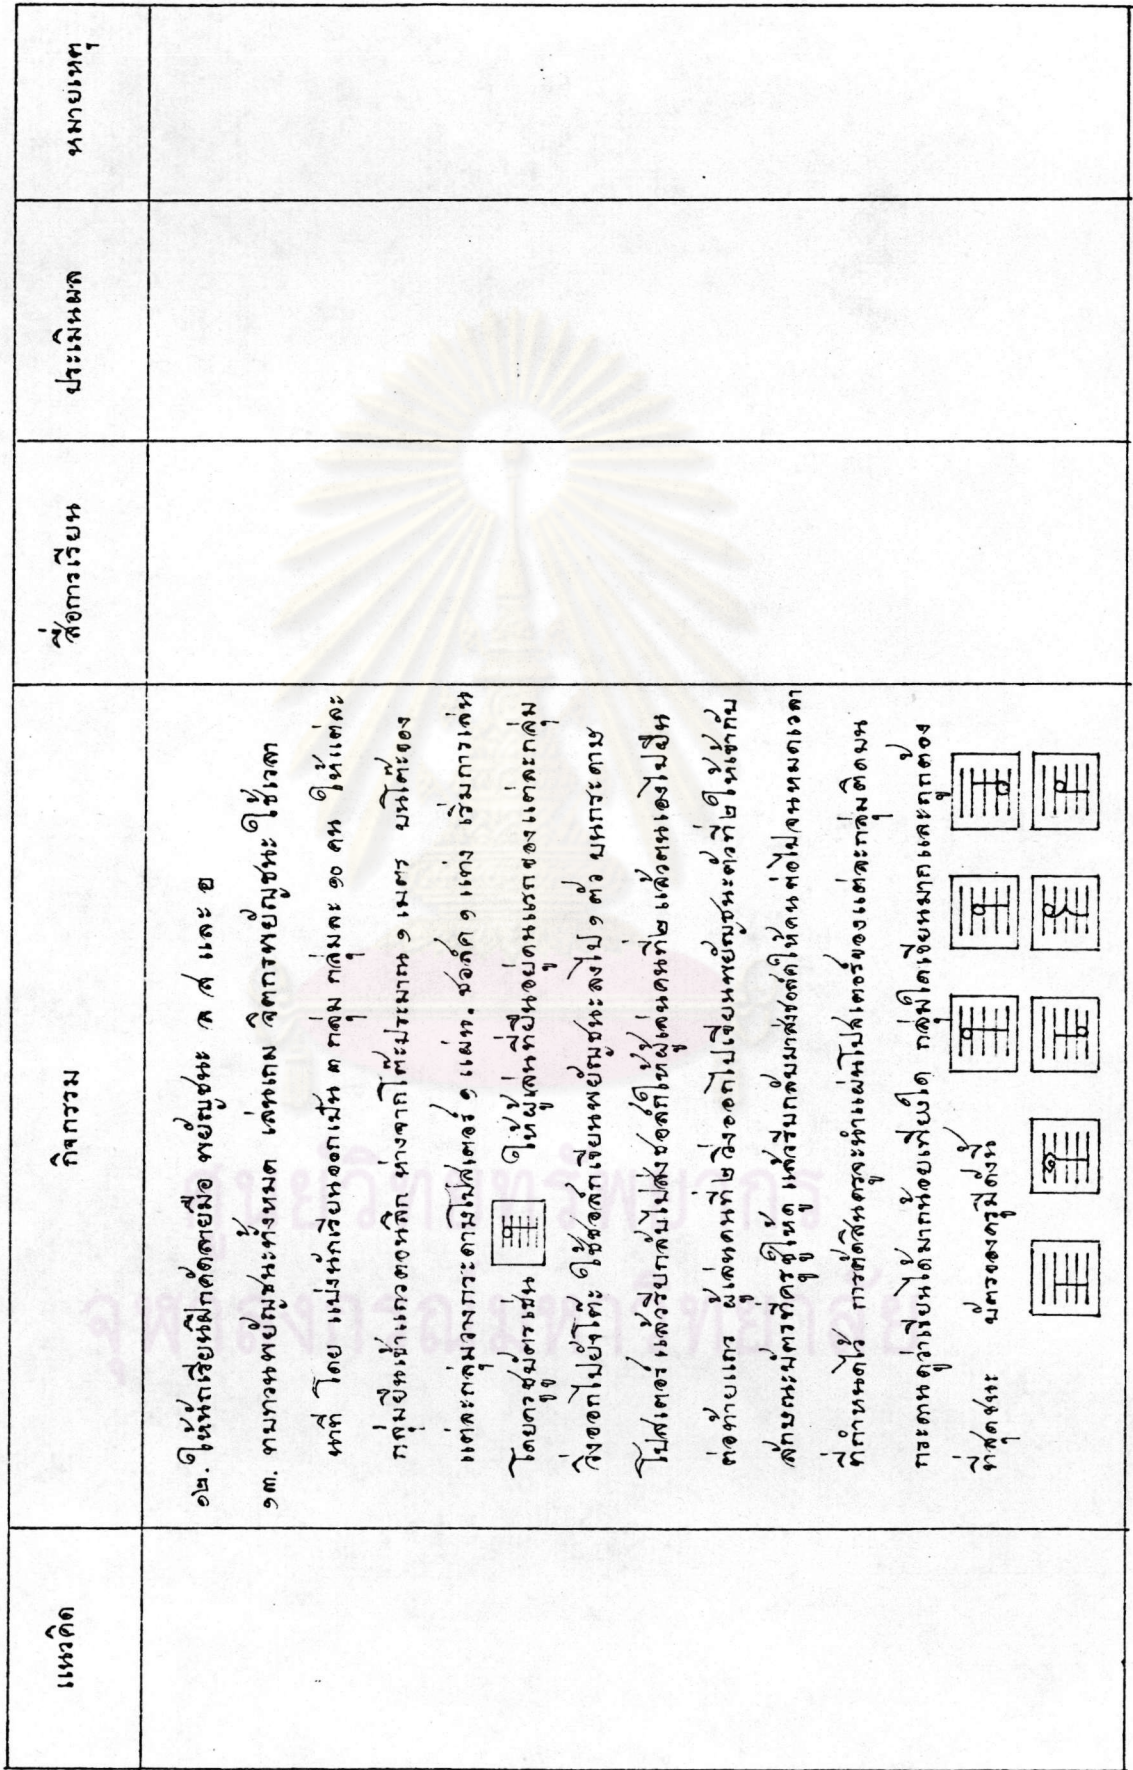 แนวคิด
กิจกรรม
สื่อการเรียน
ประเมินผล
หมายเหตุ
๑๒. ให้นักเรียนฝึกคัดลายมือ พยัญชนะ ล ส และ ฮ
๑๓. ทบทวนพยัญชนะทั้งหมด เล่นเกม จิตกรพยัญชนะ ใช้เวลา
นาที โดย แบ่งนักเรียนออกเป็น ๓ กลุ่ม กลุ่มละ ๑๐ คน ให้แต่ละ
กลุ่มยืนเข้าแถวตอนลึก ห่างจากโต๊ะประมาณ ๑ เมตร บนโต๊ะของ
แต่ละกลุ่มวางกระดาษโปสเตอร์ ๑ แผ่น. ชอล์ค ๑ แท่ง เริ่มการเล่น
โดยครูชูบัตรเช่น ให้ผู้เล่นที่ยืนอยู่คนแรกของแต่ละกลุ่ม
วิ่งออกไปยังโต๊ะ ใช้ชอล์กเขียนพยัญชนะลงไป ๑ ตัว บนกระดาษ
โปสเตอร์ แล้วรีบกลับไปส่งชอล์กให้ผู้เล่นคนที่ ๒ แล้วตนเองไปยืน
ต่อท้ายแถว ผู้เล่นคนที่ ๒ วิ่งออกไปเขียนพยัญชนะตัวที่ ๒ ให้เข้ากับ
ลักษณะบัตรที่ครูชูให้ดู แล้วรีบกลับมาส่งชอล์คให้คนต่อไปจนหมดเวลา
ที่กำหนดไว้ การตัดสินครูจะนำแผ่นโปสเตอร์ของแต่ละกลุ่มติดบน
กระดานดูว่าเขียนได้มากน้อยเพียงใด กลุ่มใดเขียนมากและถูกต้อง
ที่สุดชนะ บัตรของครูมีดังนี้
ศูนย์วิทยทรัพยากร
จุฬาลงกรณ์มหาวิทยาลัย